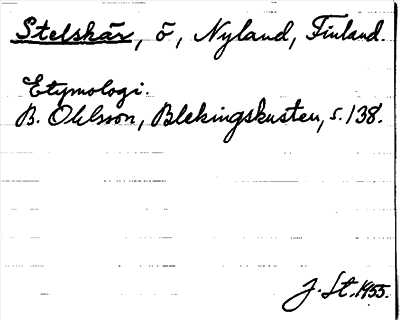 Stelskär, ö, Nyland, Finland.
Etymologi.
B. Ohlsson, Blekingskusten, s. 138.
J. St. 1955.